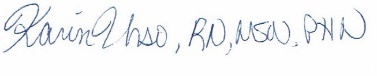 Karin Urso, RN, MSN, PHN